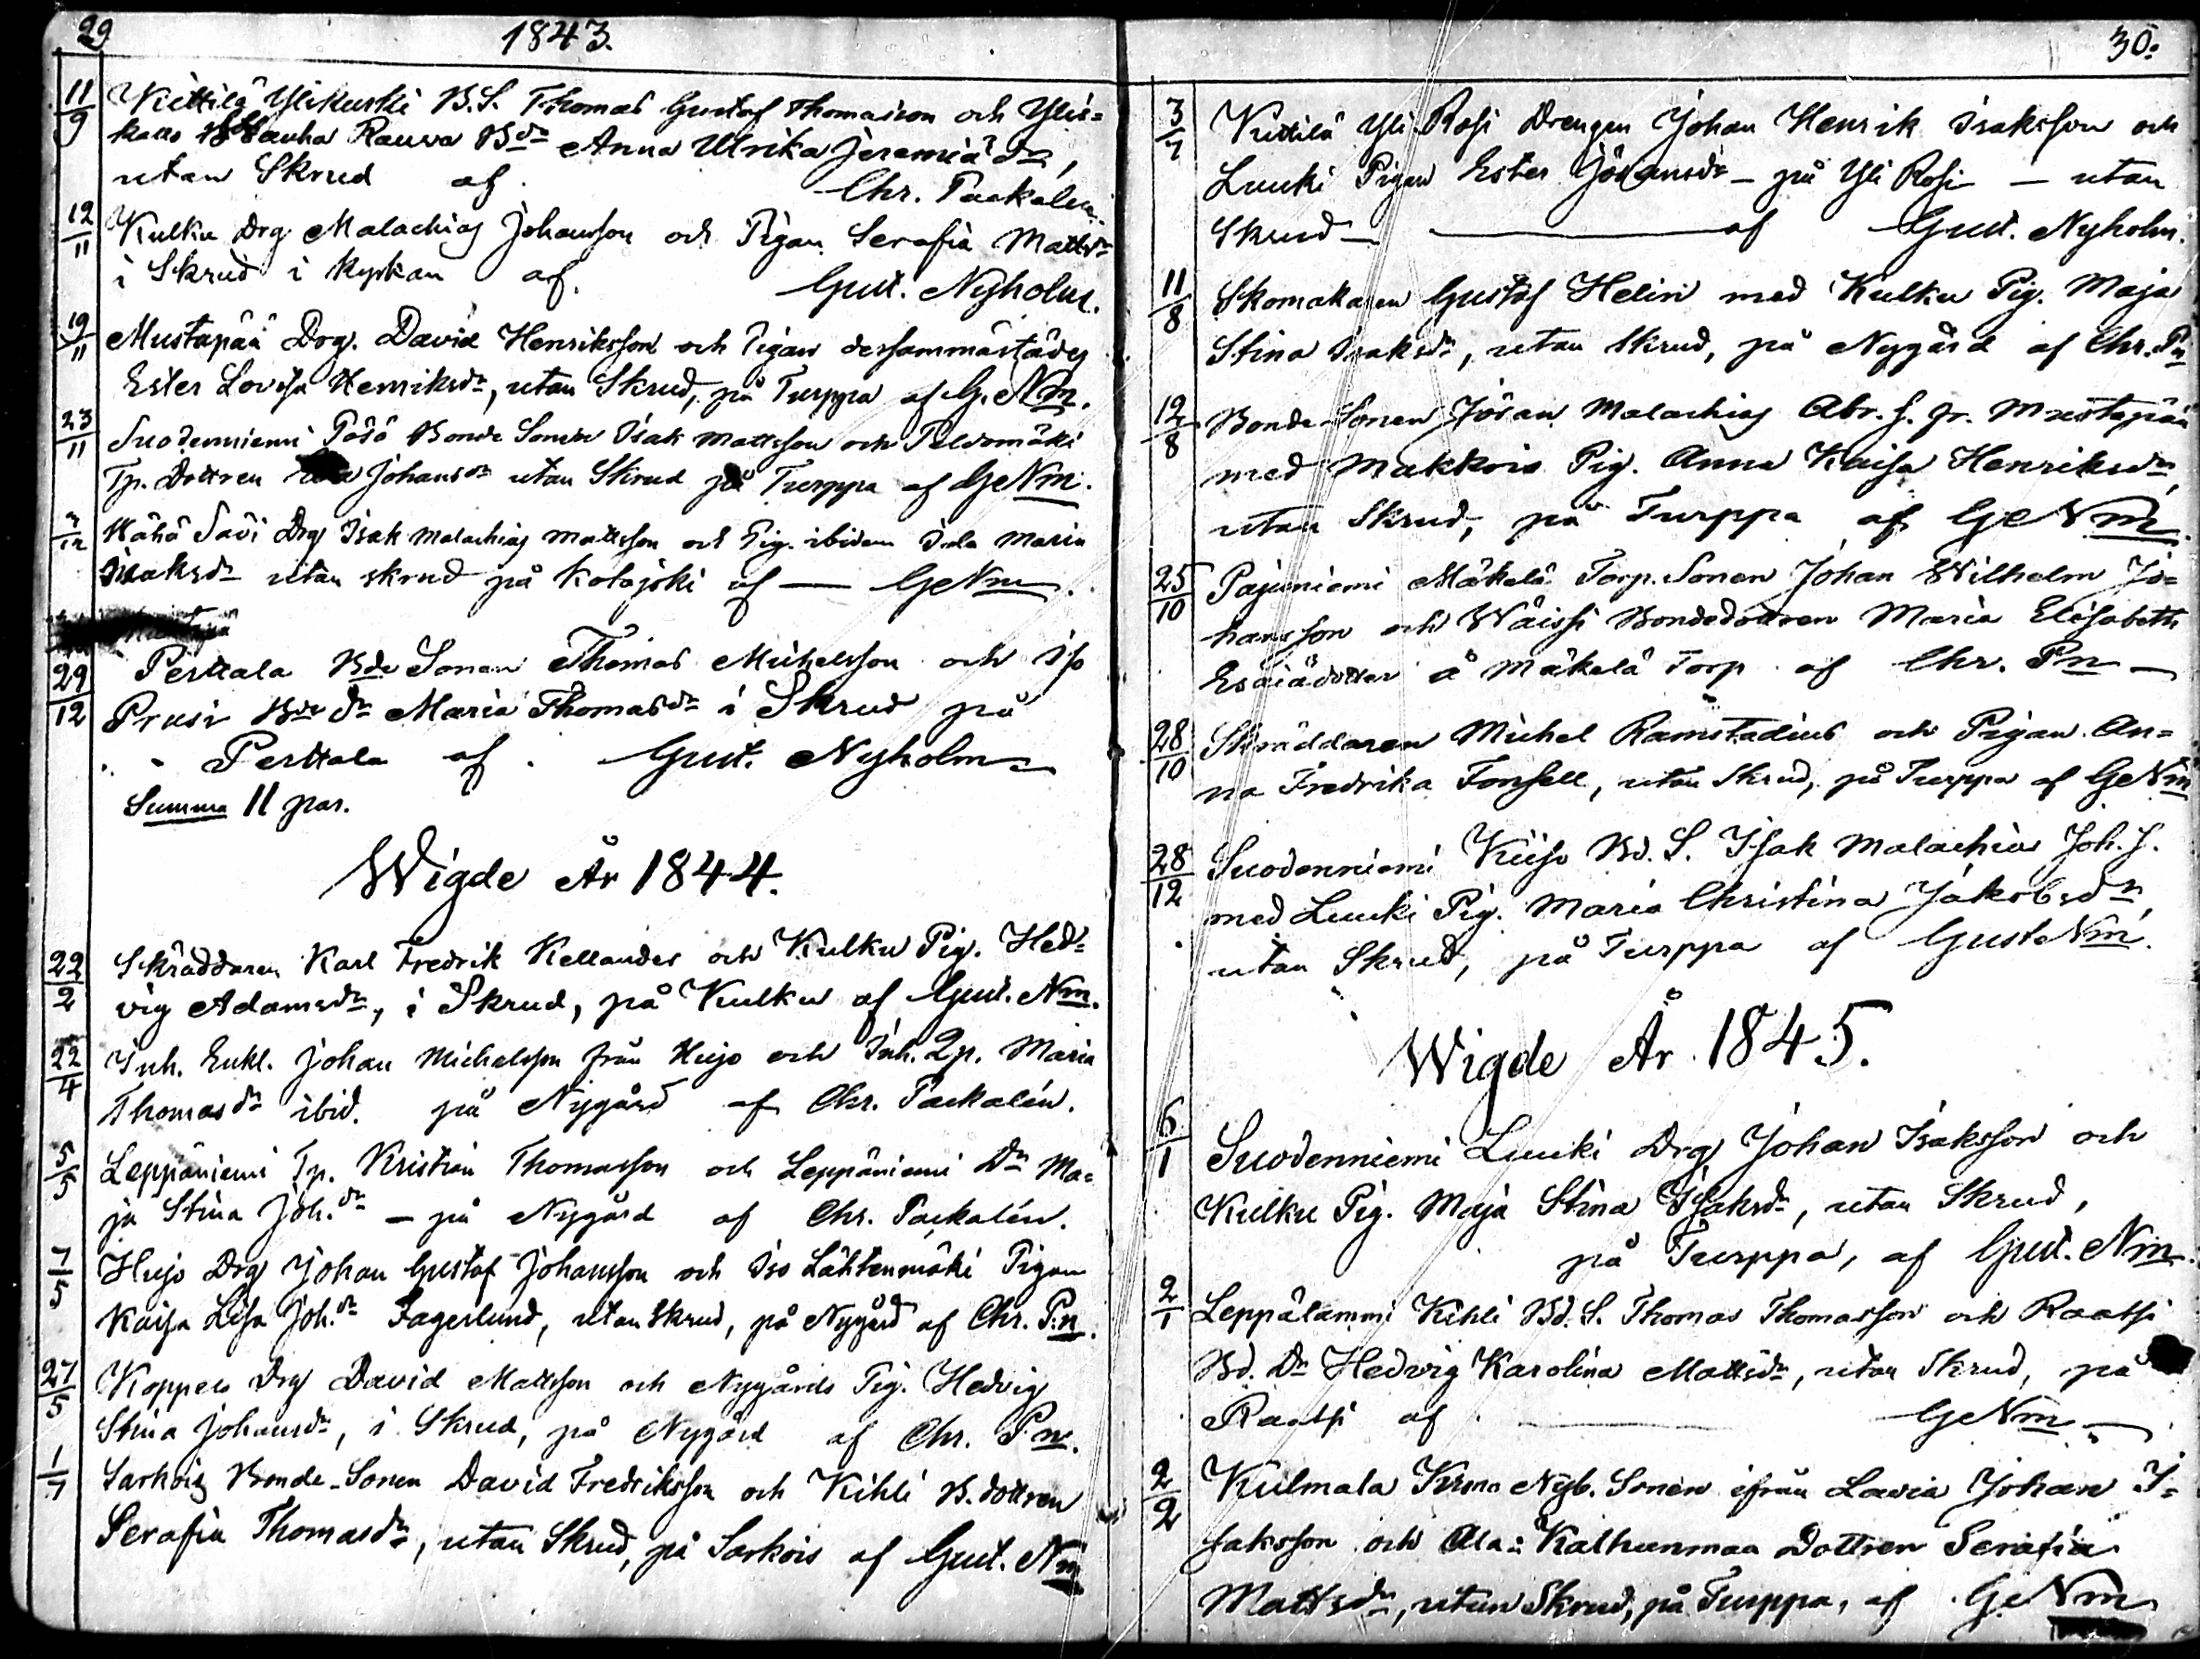 29
1843.
11/9 Kiettilä Ylikuski B.S. Thomas Gustaf Thomasson och Ylis=
Rauva Bdr Anna Ulrika Jeremiädr,
utan Skrud af. Chr. Packalén.
12/11 Kulku Drg Malachias Johansson och Pigan Serafia Mattsdr
i Skrud i Kyrkan af. Gust. Nyholm.
19/11 Mustapää Drg. David Henriksson och Pigan dersammastädes
Ester Lovisa Henriksdr, utan Skrud, på Turppa af G. Nm.
23/11 Suodenniemi Pösö Bonde Sonen Isak Mattsson och Peldomäki
Tp. Dottren Johansdr utan Skrud på Turppa af GeNm.
/12 Wähä Savi Drg Isak Malachias Mattsson och Pig. ibidem Ida Maria
Isaksdr utan skrud på Kotajoki af — GeNm.
29/12 Perttala Bde Sonen Thomas Michelsson och Iso
Prusi Bde dr Maria Thomasdr i Skrud på
Perttala af. Gust. Nyholm
Summa 11 par.
Wigde År 1844.
22/2 Skräddaren Karl Fredrik Kellander och Kulku Pig. Hed=
vig Adamsdr, i Skrud, på Kulku af Gust. Nm.
22/4 Inh. Enkl. Johan Michelsson från Hujo och Inh. Qp. Maria
Thomasdr ibid. på Nygård af Chr. Packalén.
5/5 Leppäniemi Tp. Kristian Thomasson och Leppäniemi Dr Ma=
ja Stina Joh.dr — på Nygård af Chr. Packalén.
7/5 Hujo Drg Johan Gustaf Johansson och Iso Lähtenmäki Pigan
Kaisa Lisa Joh.dr Fagerlund, utan Skrud, på Nygård af Chr. P.n.
27/5 Koppelo Drg David Mattsson och Nygårds Pig. Hedvig
Stina Johansdr, i Skrud, på Nygård af Chr. Pn.
1/7 Sarkois Bonde-Sonen David Fredriksson och Kihli B. dottren
Serafia Thomasdr, utan Skrud, på Sarkois af Gust. Nm
30.
3/7 Kittilä Yli Rosi Drengen Johan Henrik Isaksson och
Luuki Pigan Ester Göransdr — på Yli Rosi — utan
Skrud — af Gust. Nyholm.
11/8 Skomakaren Gustaf Helin med Kulku Pig. Maja
Stina Isaksdr, utan Skrud, på Nygård af Chr. Pn
12/8 Bonde Sonen Jöran Malachias Abr. S. fr. Mustapää
med Makkois Pig. Anna Kaisa Henriksdr,
utan Skrud, på Turppa af GeNm
25/10 Pajuniemi Mäkelä Torp. Sonen Johan Wilhelm Jo=
hansson och Wäissi Bondedottren Maria Elisabeth
Esaiädotter å Mäkelä Torp af Chr. Pn —
28/10 Skräddaren Michel Ramstadius och Pigan An=
na Fredrika Fonsell, utan Skrud, på Turppa af GeNm
28/12 Suodenniemi Kiiso Bd. S. Isak Malachias Joh. S.
med Luuki Pig. Maria Christina Jakobsdr,
utan Skrud, på Turppa af GusteNm.
Wigde År 1845.
6/1 Suodenniemi Luuki Drg Johan Isaksson och
Kulku Pig. Maja Stina Isaksdr, utan Skrud,
på Turppa, af Gust. Nm.
2/1 Leppälammi Kihli Bd. S. Thomas Thomasson och Raatsi
Bd. Dr Hedwig Karolina Mattsdr, utan Skrud, på
Raatsi af GeNm —
2/2 Kulmala Krono Nyb. Sonen ifrån Lavia Johan I=
saksson och Ala=Kalhunmaa Dottren Serafia
Mattsdr, utan Skrud, på Turppa, af GeNm